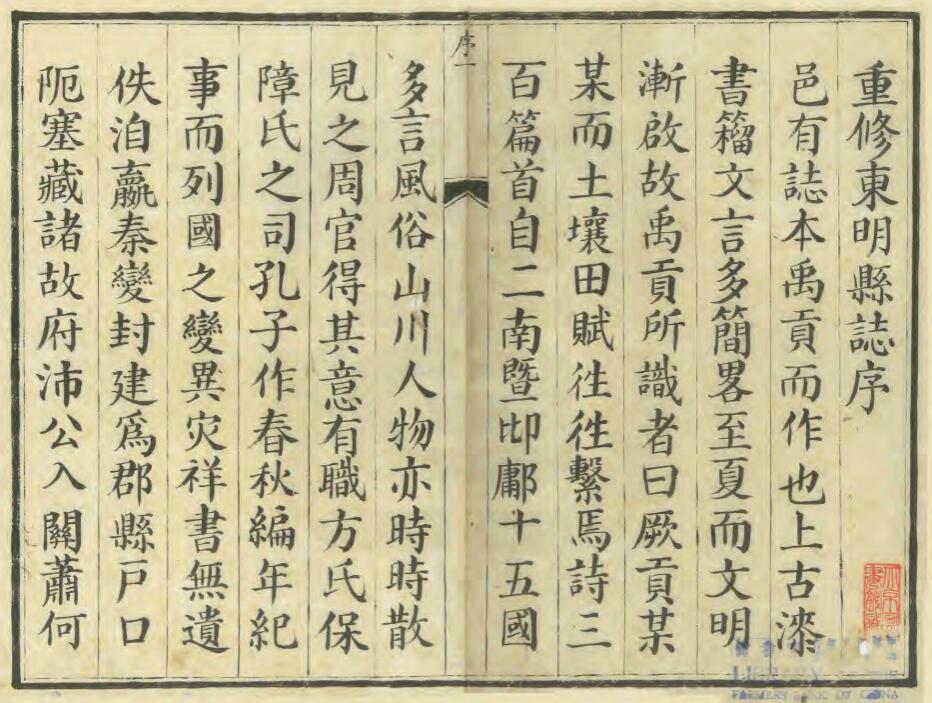 重修東明縣誌序
邑有誌本禹貢而作也上古漆
書籀文言多簡畧至夏而文明
漸啟故禹貢所識者曰厥貢某
某而土壤田賦徃徃繫焉詩三
百篇首自二南暨邶鄘十五國
序一
多言風俗山川人物亦時時散
見之周官得其意有職方氏保
障氏之司孔子作春秋編年紀
事而列國之變異災祥書無遺
佚洎嬴秦變封建爲郡縣戶口
阨塞藏諸故府沛公入關蕭何
LIBRARY
FARMERS BANK OF CHINA